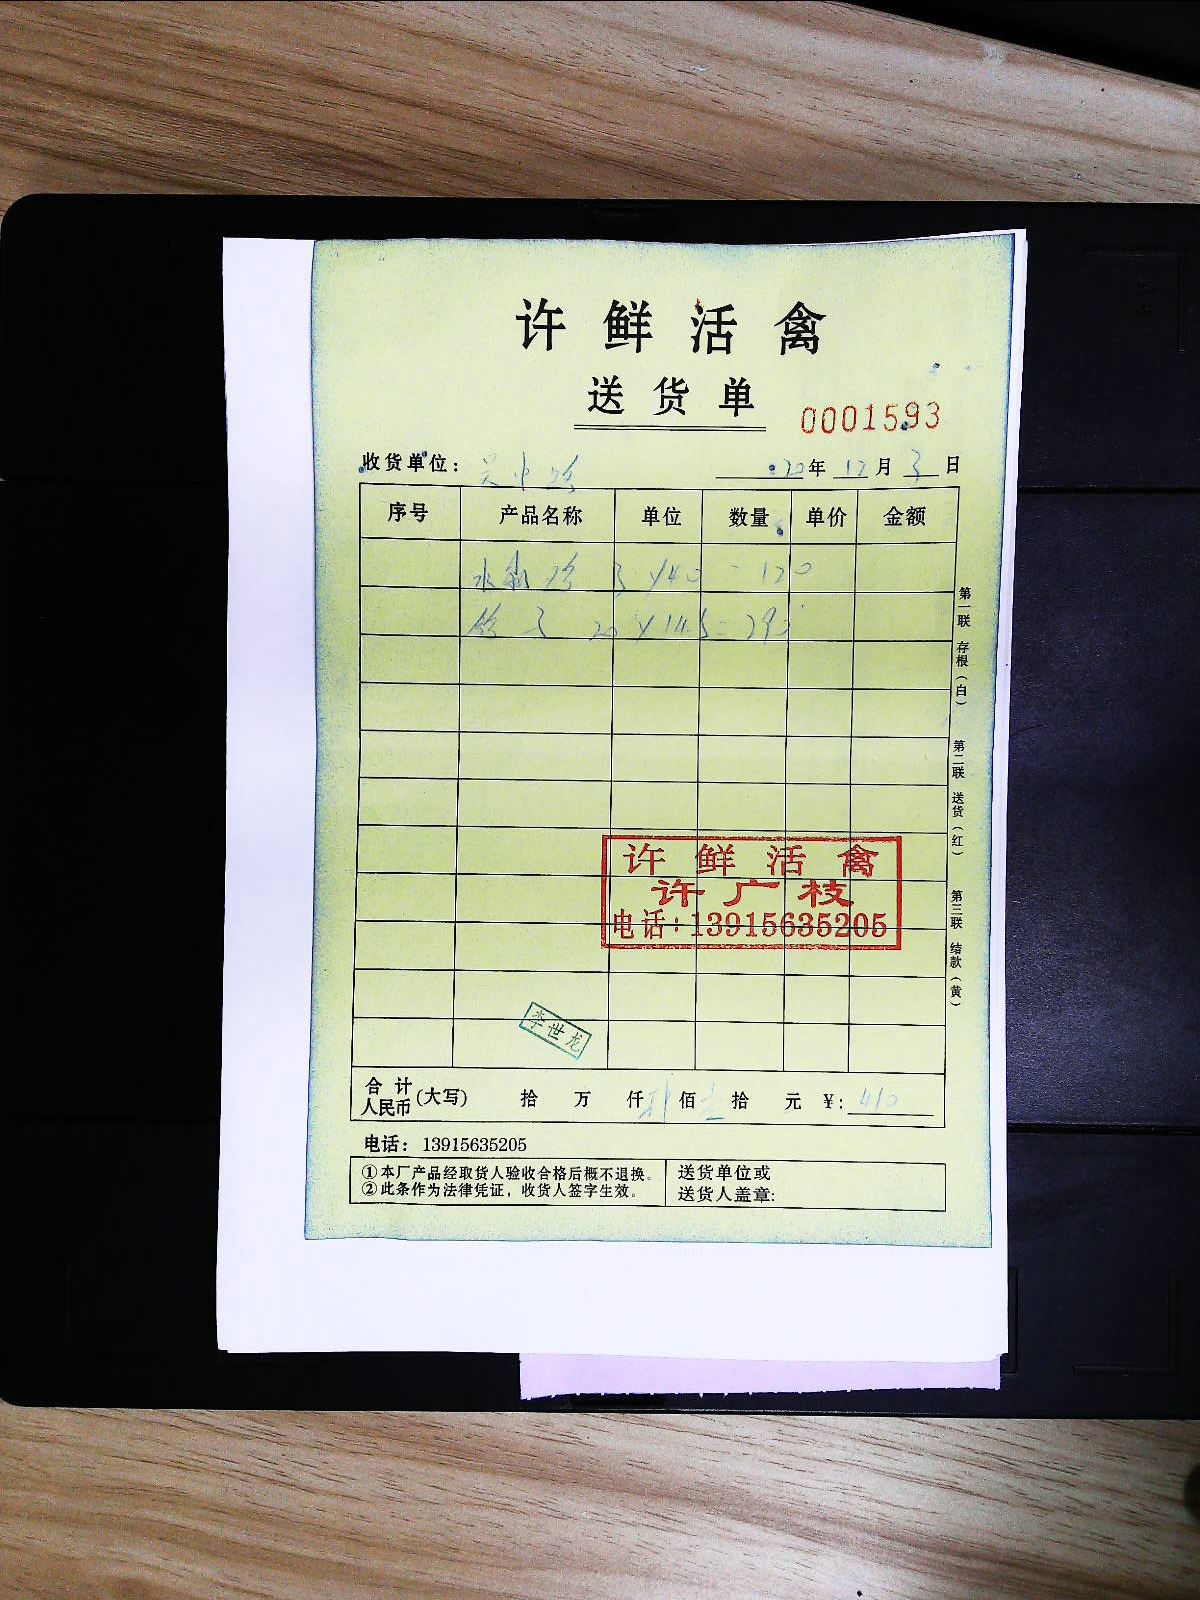 许鲜活禽
送货单
0001593
收货单位: 吴中路 20年 12月 3日
序号 产品名称 单位 数量 单价 金额
3 ×40 = 120
鸽子 20 ×14.5 = 290
第一联 存根(白)
第二联 送货(红)
第三联 结款(黄)
许鲜活禽
许广枝
电话:13915635205
李世龙
合计
人民币(大写) 拾 万 仟 肆佰 壹拾 元 ¥: 410
电话: 13915635205
①本厂产品经取货人验收合格后概不退换。
②此条作为法律凭证,收货人签字生效。
送货单位或
送货人盖章: